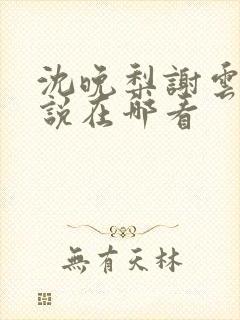 沈晚梨謝雲
說在哪看
無有天林